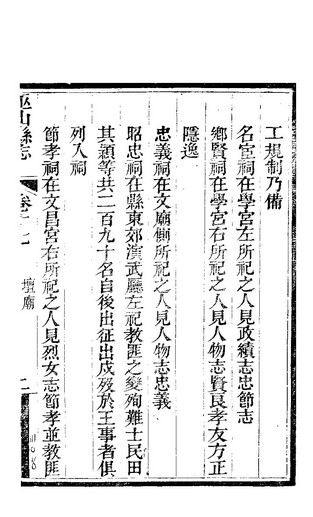 工規制乃備
名宦祠在學宮左所祀之人見政績志忠節志
鄉賢祠在學宮右所祀之人見人物志賢良孝友方正
隱逸
忠義祠在文廟側所祀之人見人物志忠義
昭忠祠在縣東郊演武廳左祀教匪之變殉難士民田
其頴等共二百九十名自後出征出戍歿於王事者俱
列入祠
節孝祠在文昌宮右所祀之人見烈女志節孝並教匪
巫山縣志
卷十七
壇廟
二